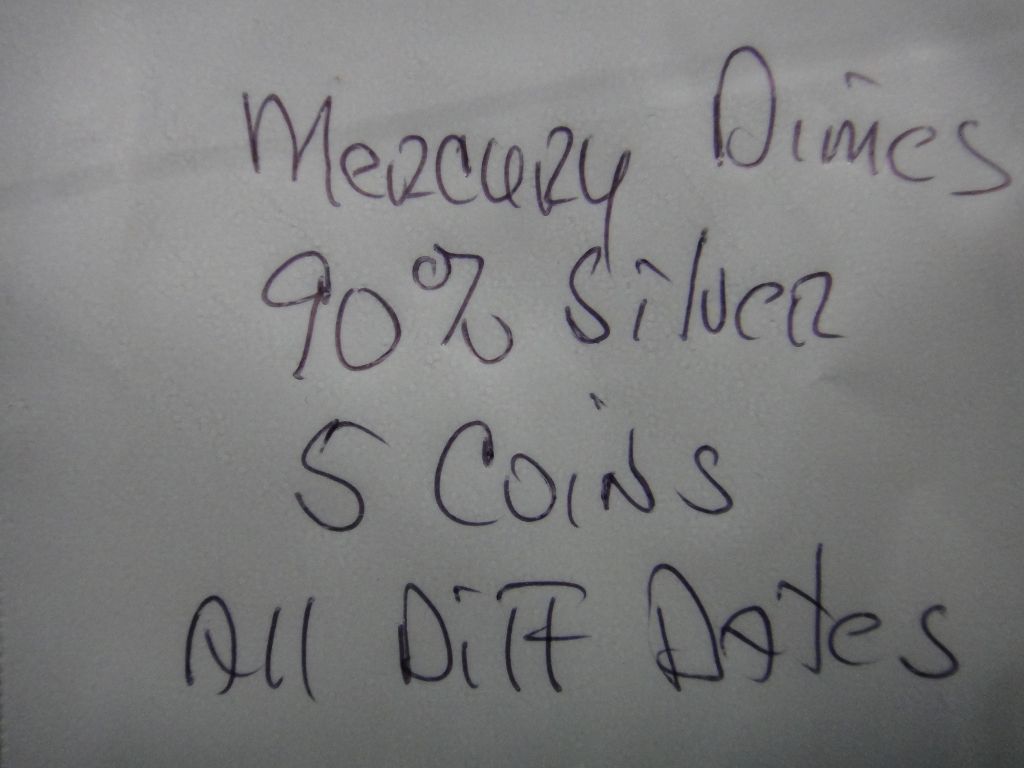 Mercury Dimes
90% Silver
5 Coins
All Diff Dates